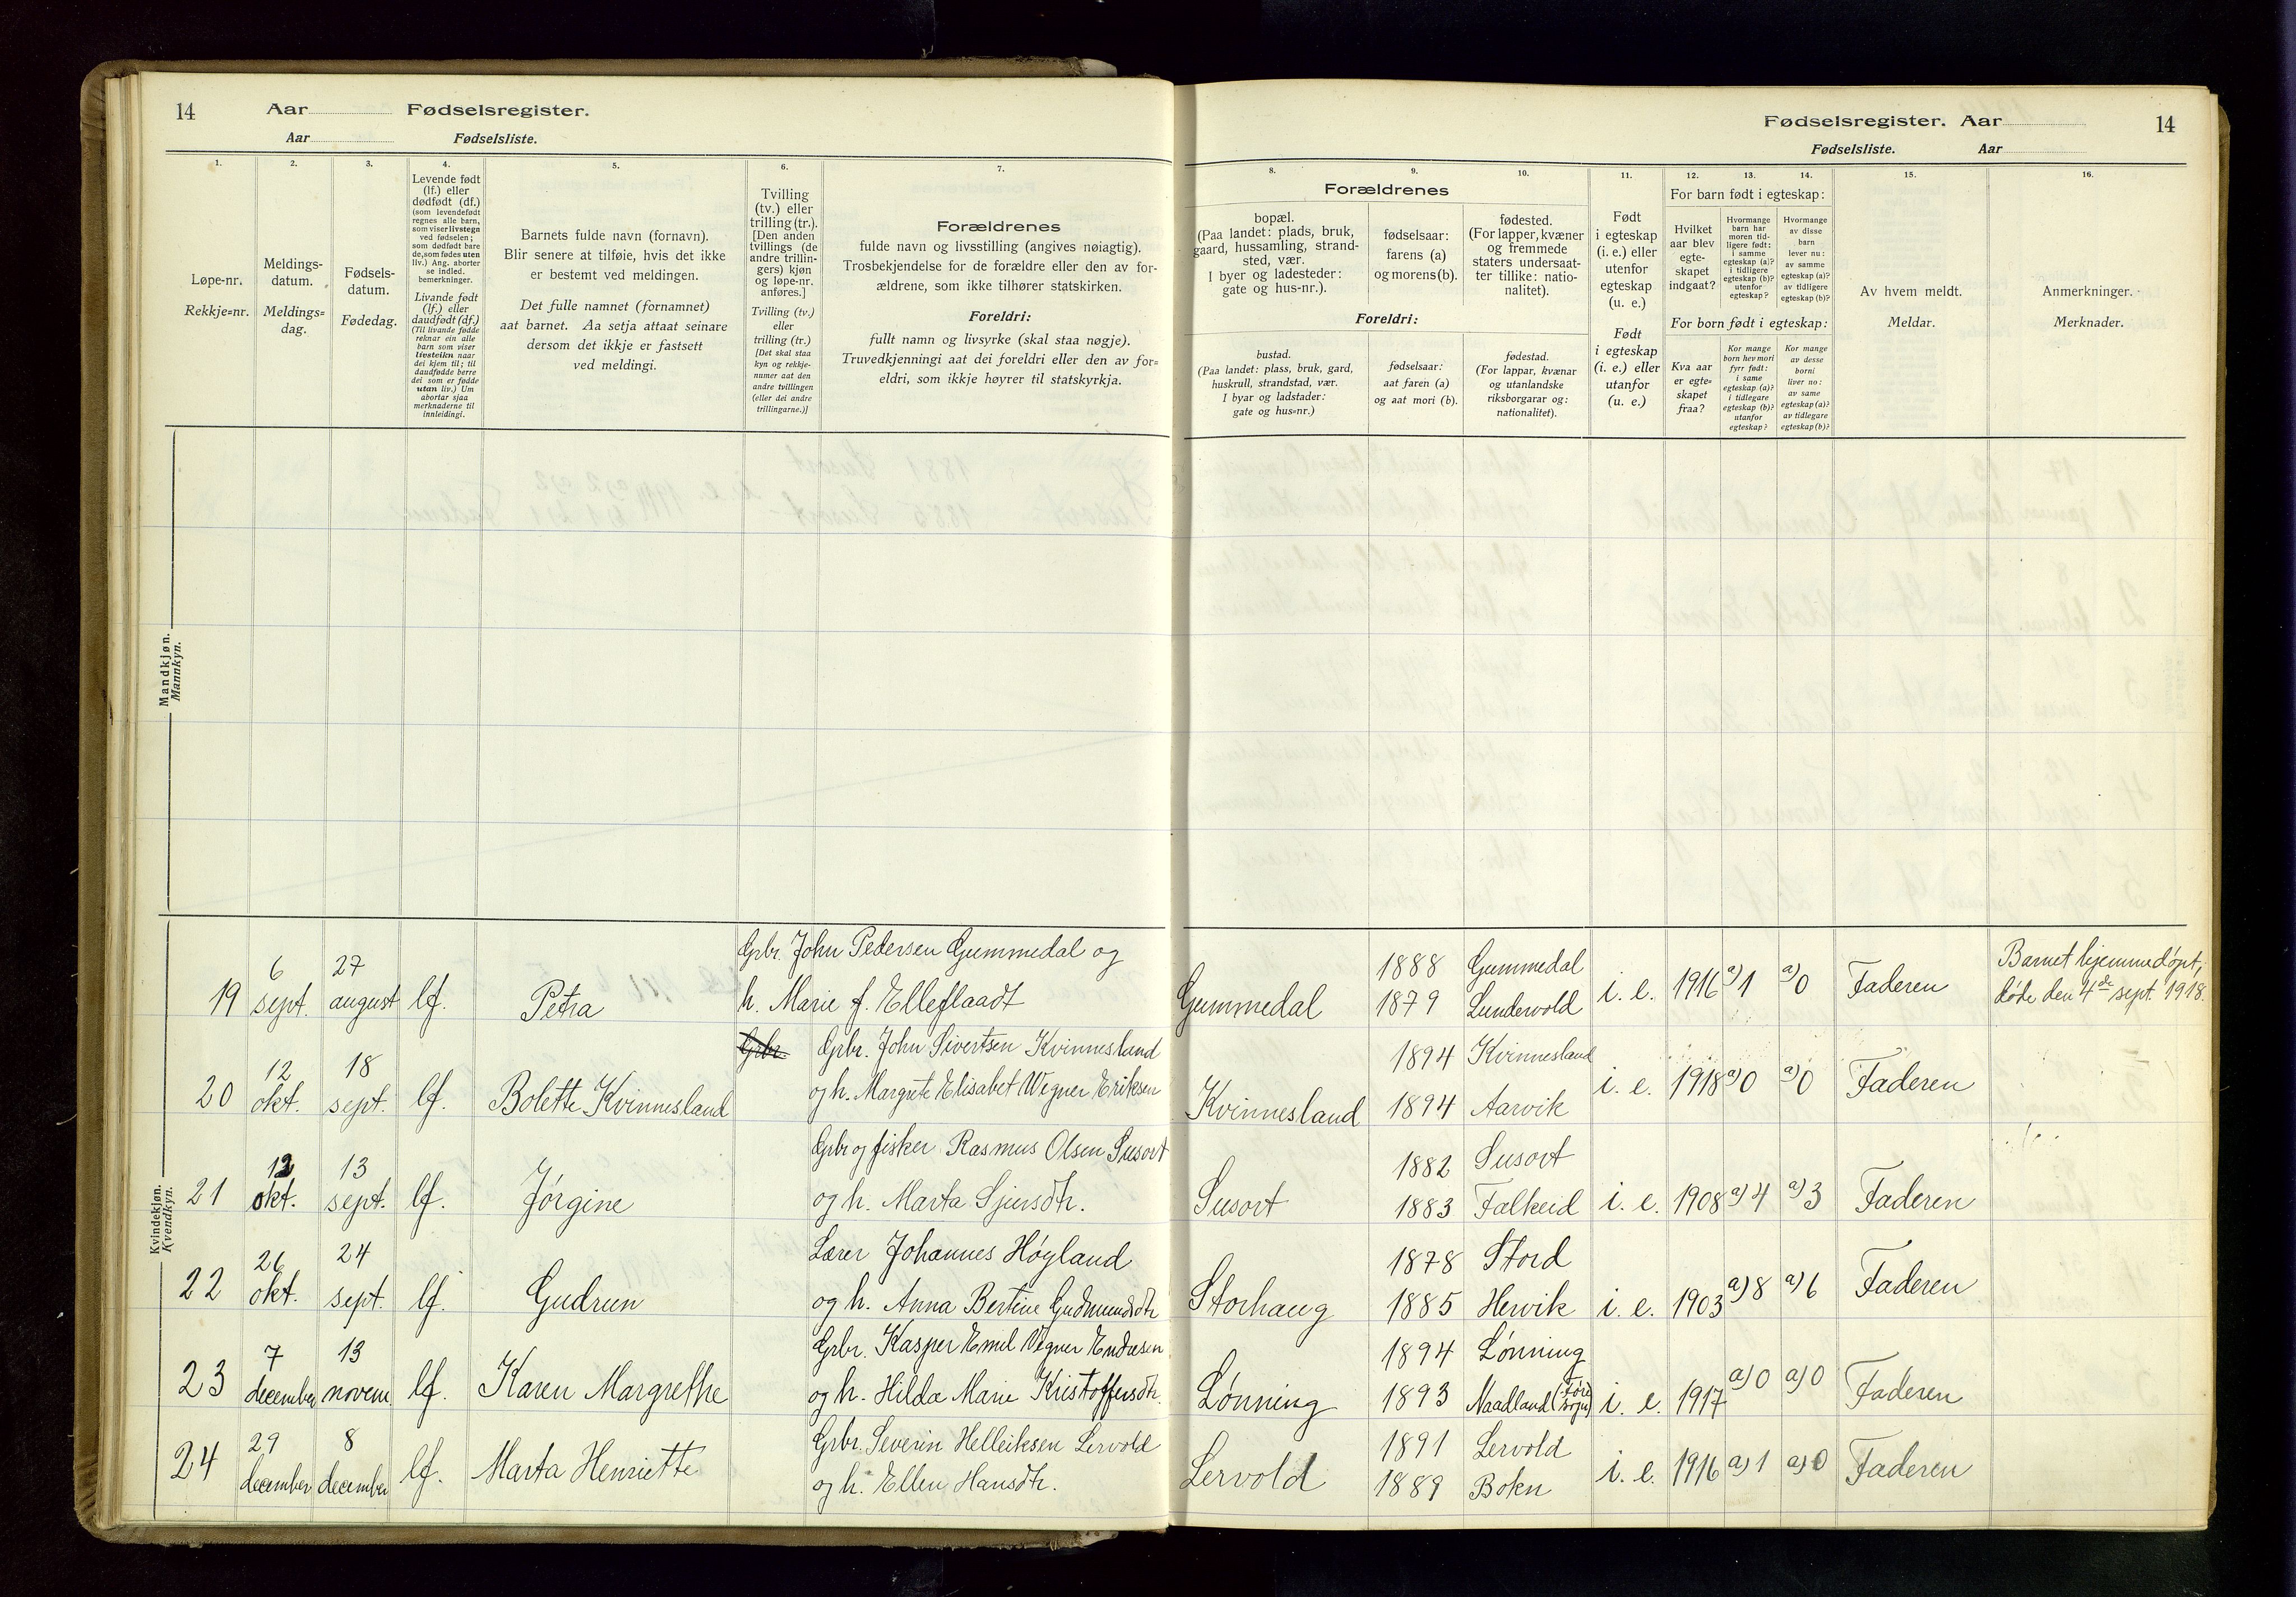 14 Aar Fødselsregister.
Aar Fødselsliste.
Fødselsregister. Aar 14
Fødselsliste. Aar
1.
Løpe-nr.
Rekkje=nr.
2.
Meldings-
datum.
Meldings=
dag.
3.
Fødsels-
datum.
Fødedag.
4.
Levende født
(lf.) eller
dødfødt (df.)
(som levendefødt
regnes alle barn,
som viser livstegn
ved fødselen;
som dødfødt bare
de, som fødes uten
liv.) Ang. aborter
se indled.
bemerkninger.
Livande født
(lf.) eller
daudfødt (df.)
(Til livande fødde
reknar ein alle
barn som viser
livsteikn naar
dei kjem til; til
daudfødde berre
dei som er fødde
utan liv.) Um
abortar sjaa
merknaderne til
innleidingi.
5.
Barnets fulde navn (fornavn).
Blir senere at tilføie, hvis det ikke
er bestemt ved meldingen.
Det fulle namnet (fornamnet)
aat barnet. Aa setja attaat seinare
dersom det ikkje er fastsett
ved meldingi.
6.
Tvilling
(tv.) eller
trilling (tr.).
[Den anden
tvillings (de
andre trillin-
gers) kjøn
og løpe-nr.
anføres.]
Tvilling (tv.)
eller
trilling (tr.)
[Det skal staa
kyn og rekkje-
numer aat den
andre tvillingen
(eller dei andre
trillingarne.)]
7.
Forældrenes
fulde navn og livsstilling (angives nøiagtig).
Trosbekjendelse for de forældre eller den av for-
ældrene, som ikke tilhører statskirken.
Foreldri:
fullt namn og livsyrke (skal staa nøgje).
Truvedkjenningi aat dei foreldri eller den av for=
eldri, som ikkje høyrer til statskyrkja.
8.
9.
10.
Forældrenes
bopæl.
(Paa landet: plads, bruk,
gaard, hussamling, strand-
sted, vær.
I byer og ladesteder:
gate og hus-nr.).
fødselsaar:
farens (a)
og morens (b).
fødested.
(For lapper, kvæner
og fremmede
staters undersaat-
ter tillike: natio-
nalitet).
Foreldri:
bustad.
(Paa landet: plass, bruk, gard,
huskrull, strandstad, vær.
I byar og ladstader:
gate og hus=nr.)
fødselsaar:
aat faren (a)
og aat mori (b).
fødestad.
(For lappar, kvænar
og utanlandske
riksborgarar og:
nationalitet).
11.
Født
i egteskap
(i. e.) eller
utenfor
egteskap
(u. e.)
Født
i egteskap
(i. e.) eller
utanfor
(u. e.)
12. 13. 14.
For barn født i egteskap:
Hvilket
aar blev
egte-
skapet
indgaat?
Hvormange
barn har
moren tid-
ligere født:
i samme
egteskap (a)?
i tidligere
egteskap (b)?
utenfor
egteskap?
Hvormange
av disse
barn
lever nu:
av samme
egteskap (a)?
av tidligere
egteskap (b)?
For born født i egteskap:
Kva aar
er egte=
skapet
fraa?
Kor mange
born hev mori
fyrr født:
i same
egteskap (a)?
i tidlegare
egteskap (b)?
utanfor
egteskap?
Kor mange
av desse
borni
liver no:
av same
egteskap (a)?
av tidlegare
egteskap (b)?
15.
Av hvem meldt.
Meldar.
16.
Anmerkninger.
Merknader.
Mandkjøn.
Mannkyn.
Kvindekjøn.
Kvendkyn.
19 6 sept. 27 august lf. Petra
Grbr. John Pedersen Gummedal og
h. Marie f. Elleflaadt
Gummedal 1888 Gummedal
1879 Lundervold
i. e. 1916 a) 1 a) 0 Faderen
Barnet hjemmedøpt,
døde den 4de sept. 1918.
20 12 okt. 18 sept. lf. Bolette Kvinnesland
Grbr. Grbr. John Sivertsen Kvinnesland
og h. Margrete Elisabet Wegner Eriksen
Kvinnesland 1894 Kvinnesland
1894 Aarvik
i. e. 1918 a) 0 a) 0 Faderen
21 12 okt. 13 sept. lf. Jørgine
Grbr og fisker Rasmus Olsen Susort
og h. Marta Sjursdtr.
Susort 1882 Susort
1883 Falkeid
i. e. 1908 a) 4 a) 3 Faderen
22 26 okt. 24 sept. lf. Gudrun
Lærer Johannes Høyland
og h. Anna Bertine Gudmundsdtr
Storhaug 1878 Stord
1885 Hervik
i. e. 1903 a) 8 a) 6 Faderen
23 7 december 13 novem. lf. Karen Margrethe
Grbr. Kasper Emil Vegner Endresen
og h. Hilda Marie Kristoffersdtr.
Lønning 1894 Lønning
1893 Naadland (sogn)
i. e. 1917 a) 0 a) 0 Faderen
24 29 december 8 december lf. Marta Henriette
Grbr. Severin Helleiksen Lervold
og h. Ellen Hansdtr.
Lervold 1891 Lervold
1889 Bokn
i. e. 1916 a) 1 a) 0 Faderen